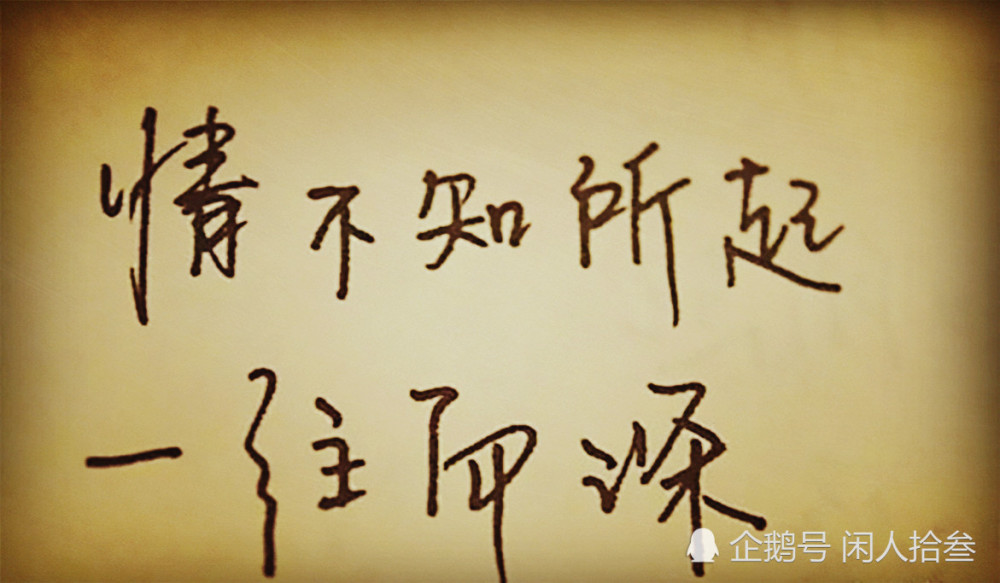 情不知所起
一往而深
企鹅号 闲人拾叁